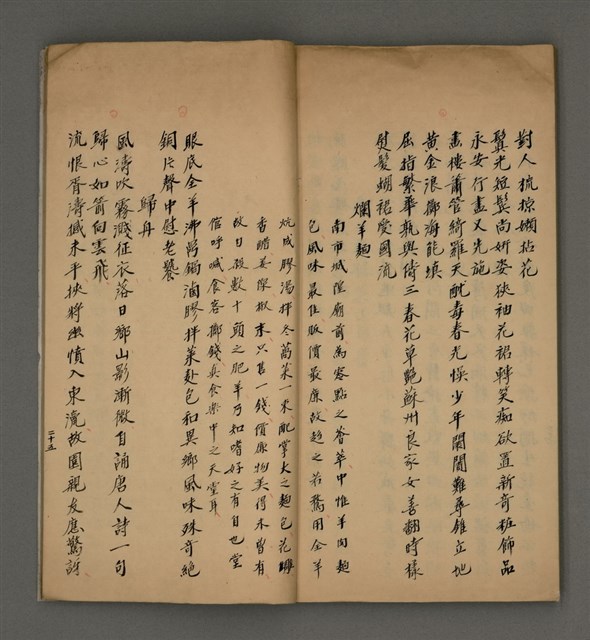 對人梳掠嬾拈花
鬢光短鬢尚妍姿狹袖花裙轉笑痴欲置新奇班飾品
永安行盡又先施
畫樓簫管綺羅天酖毒春光悞少年閑閒難尋錐立地
黃金浪擲海能填
屈指繁華孰與儔三春花草艷蘇州良家女善翻時樣
熨髮蝴裙愛國流
爛羊麵
南市城隍廟前為客點之薈萃中惟羊肉麵
包風味最佳取價最廉故趨之若鶩用全羊
炕成膠湯拌冬葛菜一束配掌大之麵包花椒
香醋姜隙椒末只售一錢價廉物美得未曾有
故日殺數十頭之肥羊乃如嗜好之有自也堂
倌呼喊食客擲錢真食樂中之天堂耳
眼底全羊沸萬鍋滷膠拌菜赴包和異鄉風味殊奇絕
銅片聲中慰老饕
歸舟
風濤吹霧濺征衣落日鄉山影漸微自誦唐人詩一句
歸心如箭白雲飛
流恨胥濤撼未平挾將幽憤入東瀛故園親友應驚訝
二十五